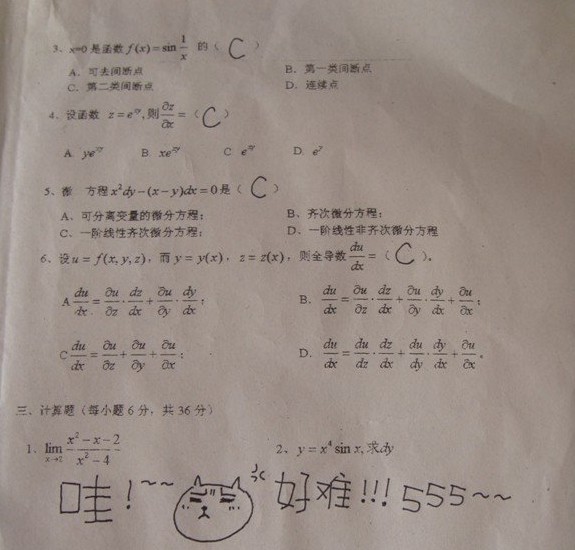 3、x=0 是函数 f(x)=sin 1/x 的（ C ）
A、可去间断点 B、第一类间断点
C、第二类间断点 D、连续点
4、设函数 z=e^{xy},则 ∂z/∂x =（ C ）
A. ye^{xy} B. xe^{xy} C. e^{xy} D. e^y
5、微 方程 x²dy-(x-y)dx=0 是（ C ）
A、可分离变量的微分方程； B、齐次微分方程；
C、一阶线性齐次微分方程； D、一阶线性非齐次微分方程
6、设 u=f(x,y,z)，而 y=y(x)，z=z(x)，则全导数 du/dx =（ C ）。
A du/dx = ∂u/∂z · dz/∂x + ∂u/∂y · dy/dx； B. du/dx = ∂u/∂z · dz/dx + ∂u/∂y · dy/dx + ∂u/∂x；
C du/dx = ∂u/∂z + ∂u/∂y + ∂u/∂x； D. du/dx = du/dz · dz/dx + du/dy · dy/dx + ∂u/∂x。
三、计算题（每小题 6 分，共 36 分）
1、lim_{x→2} (x²-x-2)/(x²-4) 2、y=x⁴ sin x,求dy
哇!~~ 好难!!! 555~~